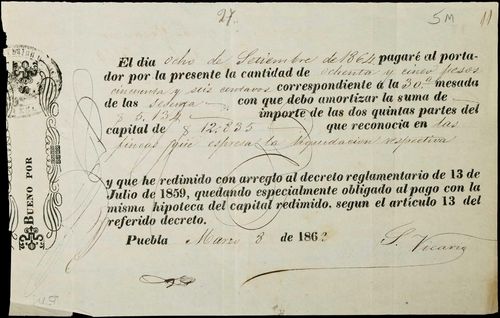 27.
5M
11
El dia ocho de Setiembre de 1864 pagaré al porta-
dor por la presente la cantidad de ochenta y cinco pesos
cincuenta y seis centavos correspondiente á la 30.a mesada
de las sesenta con que debo amortizar la suma de
$ 5,134 importe de las dos quintas partes del
capital de $ 12,835 que reconocia en las
fincas que espresa la liquidacion respectiva
y que he redimido con arreglo al decreto reglamentario de 13 de
Julio de 1859, quedando especialmente obligado al pago con la
misma hipoteca del capital redimido, segun el artículo 13 del
referido decreto.
Puebla Marzo 8 de 1862
BUENO POR